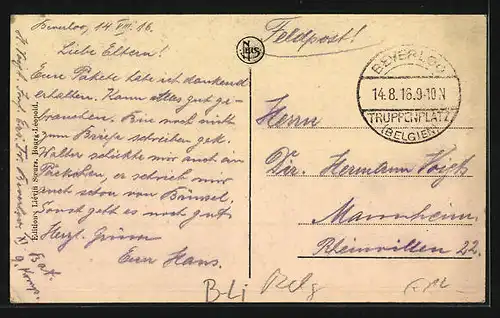 Beverloo, 14 VIII. 16.
Liebe Eltern!
Eure Pakete habe ich dankend
erhalten. Kann alles gut ge-
brauchen. Bin noch nicht
zum Briefe schreiben gek.
Walter schickte mir auch ein
Päckchen, er schrieb mir
auch schon von Hänsel.
Sonst geht es noch gut.
Herzl. Grüsse
Euer Hans.
Edition Liévin Sœurs, Bourg-Léopold.
NELS
Feldpost!
BEVERLOO
14.8.16.9-10.N
TRUPPENPLATZ
(BELGIEN)
Herrn
Dir. Hermann Voigt
Mannheim
Rheinvillen 22.
B-Li
Belg